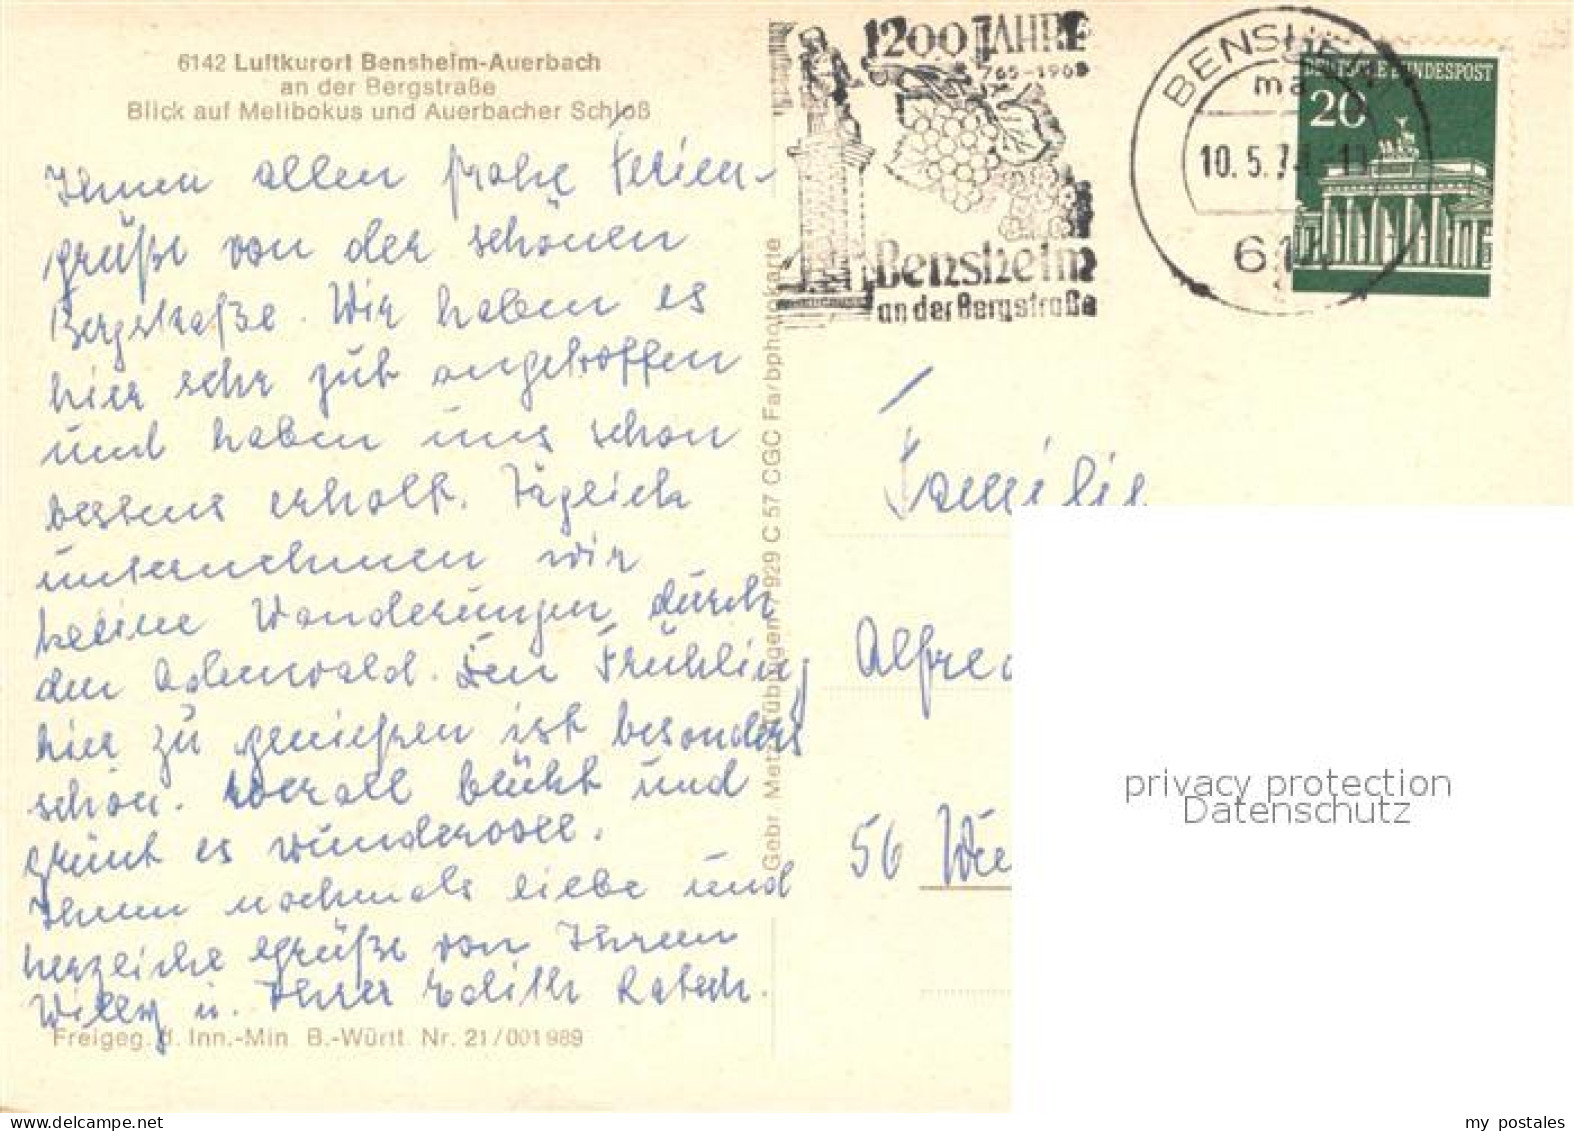 6142 Luftkurort Bensheim-Auerbach
an der Bergstraße
Blick auf Melibokus und Auerbacher Schloß
Ihnen allen frohe Ferien-
grüße von der schönen
Bergstraße. Wir haben es
hier sehr gut angetroffen
und haben uns schon
bestens erholt. Täglich
unternehmen wir
kleine Wanderungen durch
den Odenwald. Den Frühling
hier zu genießen ist besonders
schön. Überall blüht und
grünt es wundervoll.
Ihnen nochmals liebe und
herzliche Grüße von Ihrem
Willy u. Ihrer Edith
Freigeg. d. Inn.-Min. B.-Württ. Nr. 21/001989
Gebr. Metz Tübingen 7929 C 57 CGC Farbphotokarte
1200 JAHRE
765-1965
Bensheim
an der Bergstraße
BENSHEIM
ma
10.5.71
614
DEUTSCHE BUNDESPOST
20
Familie
Alfred
56
privacy protection
Datenschutz
my postales
www.delcampe.net